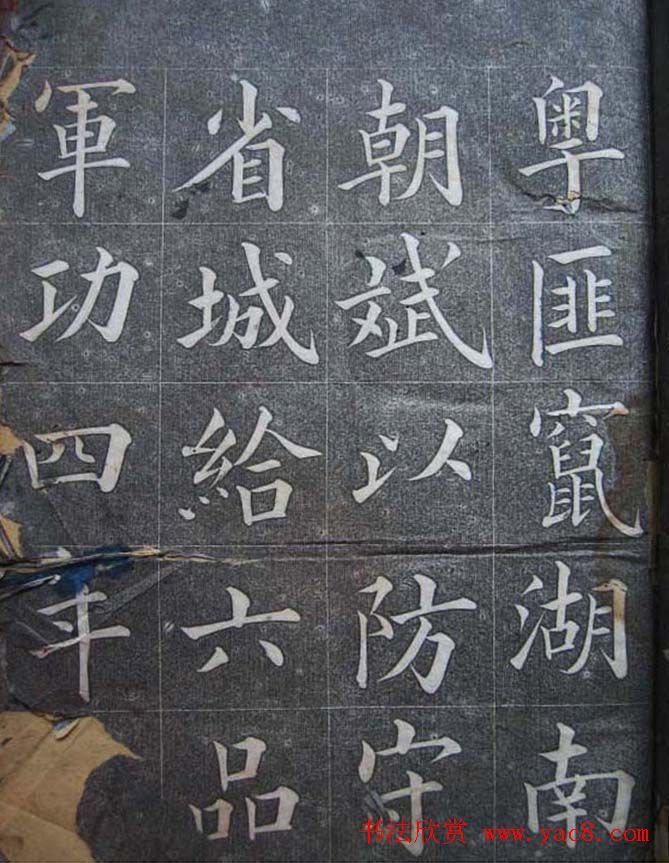 粵匪竄湖南
朝斌以防守
省城給六品
軍功四年
书法欣赏 www.yac8.com